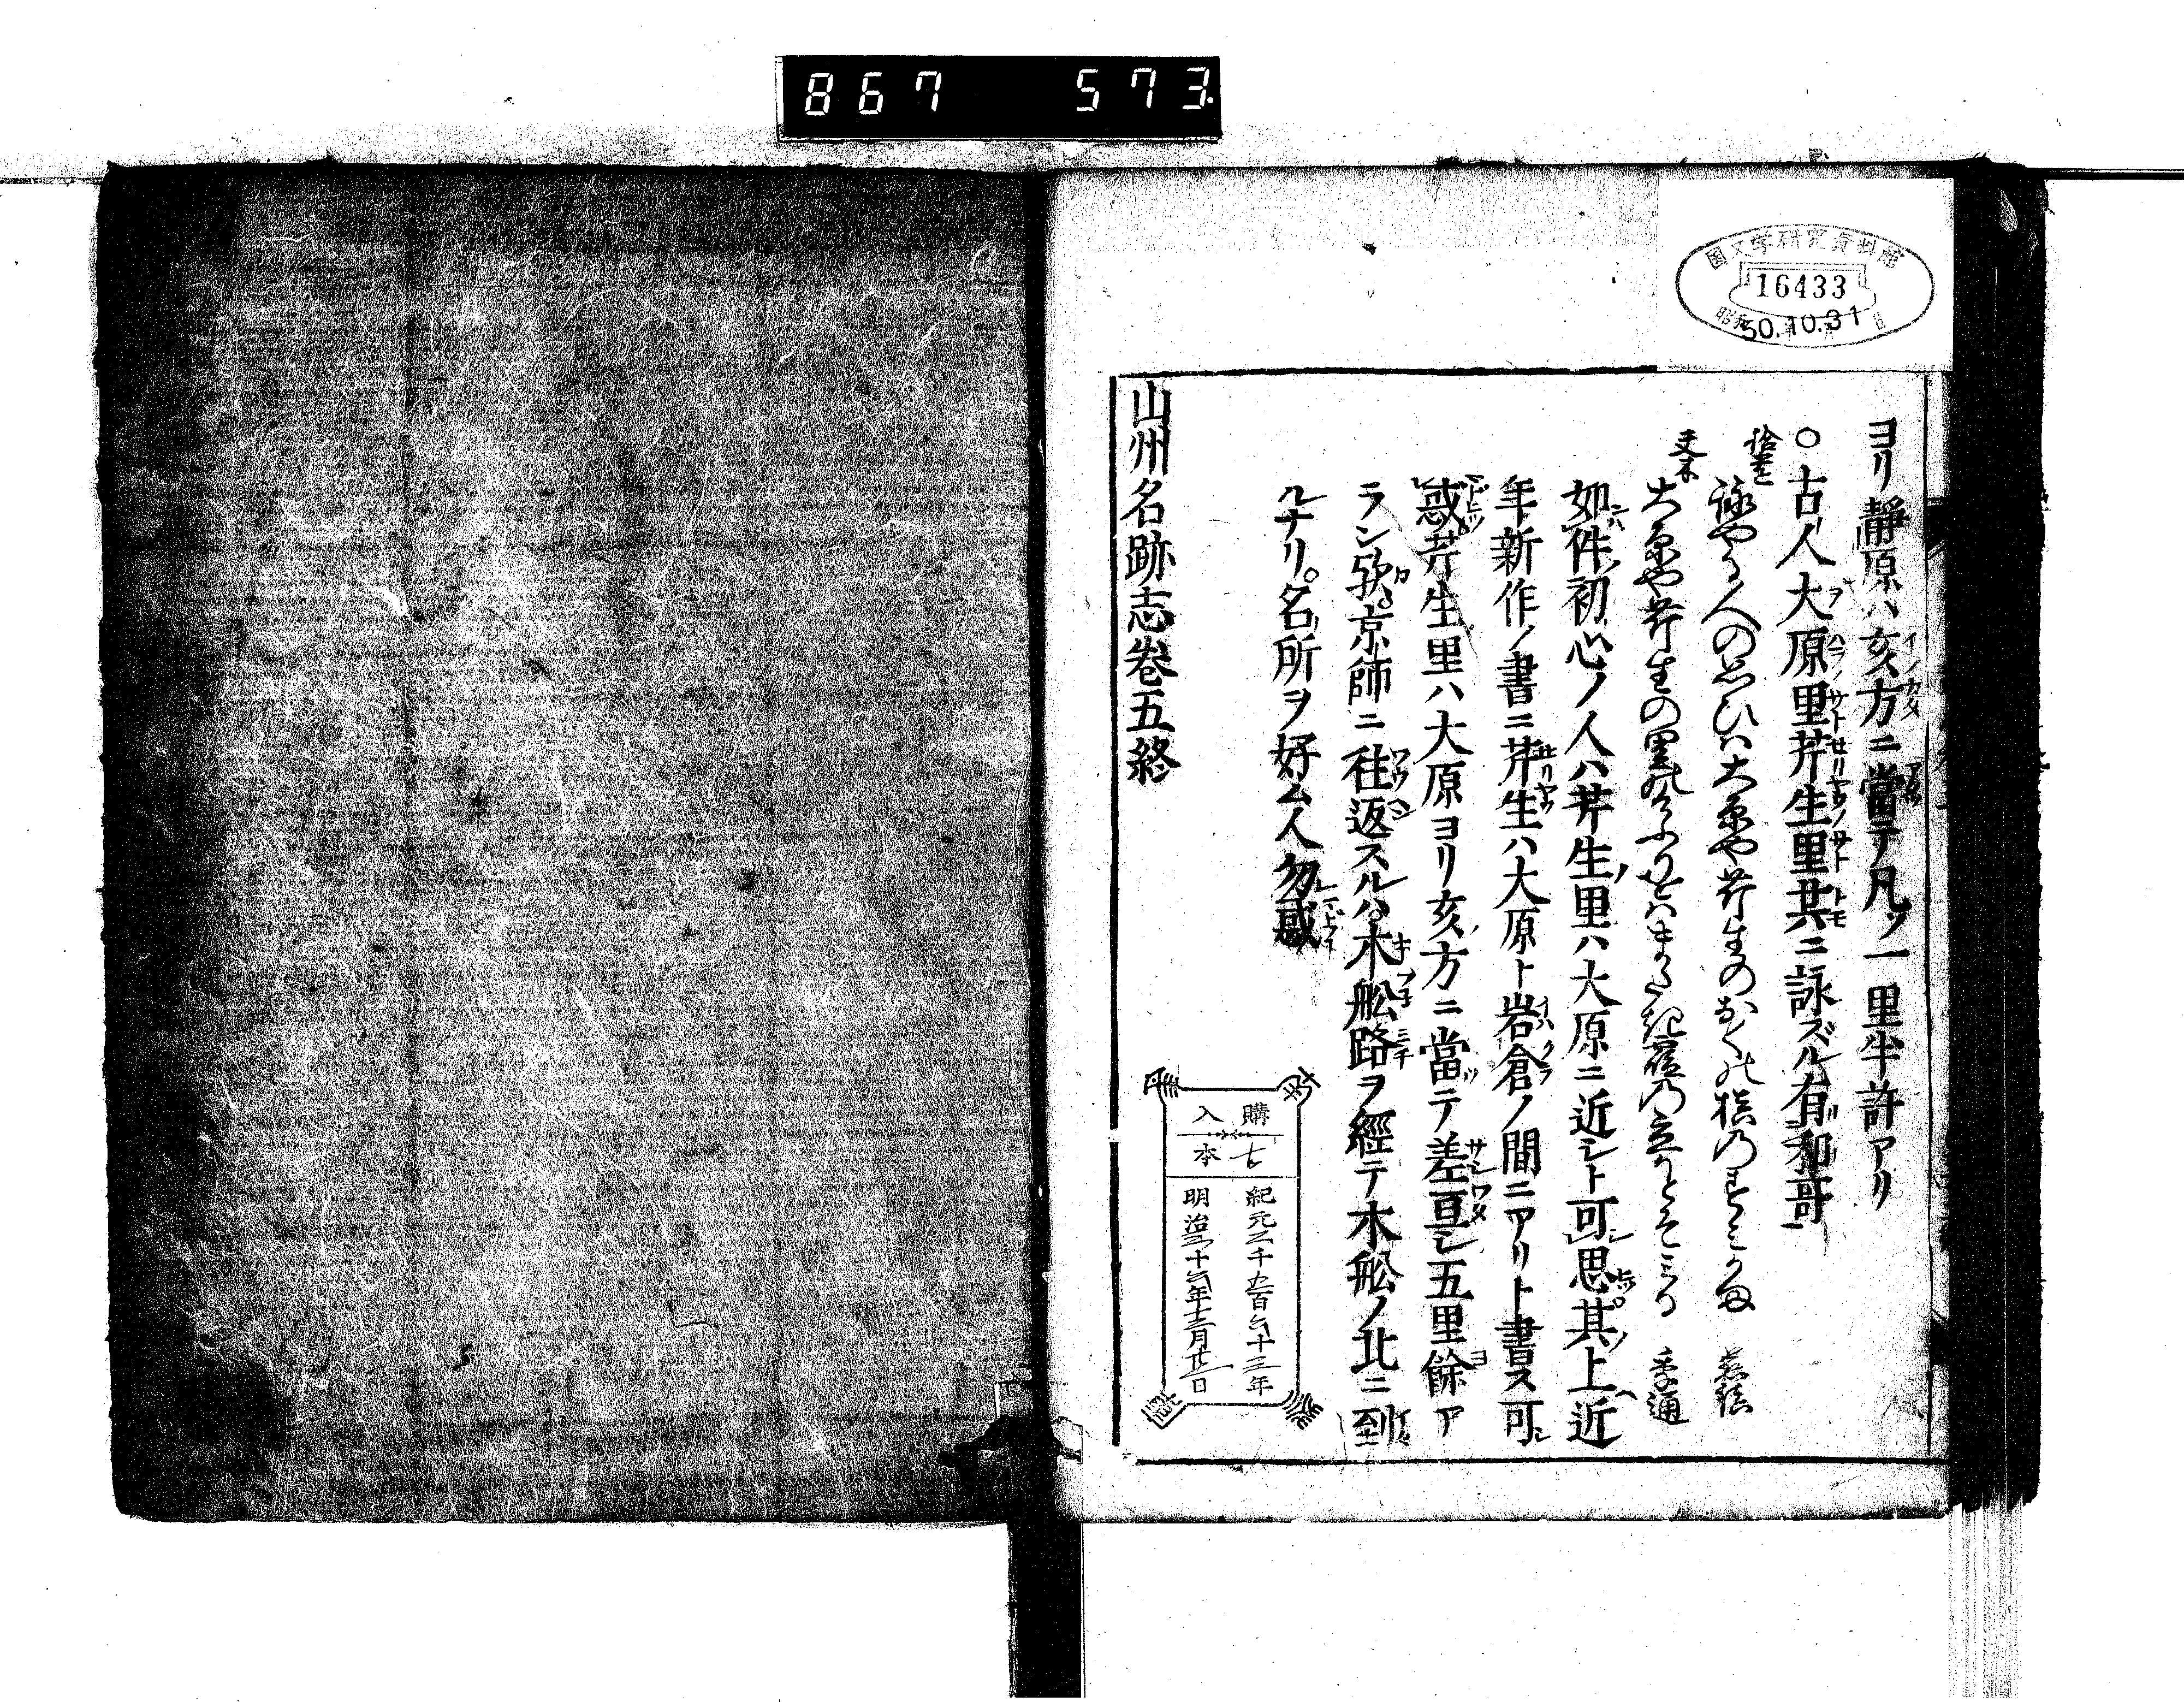 867 573.
国文学研究資料館
16433
昭和50.10.31
ヨリ靜原ハ亥方ニ當テ凡ソ一里半許アリ
○古人大原里芹生里共ニ詠ズル有和哥
拾玉
詠やる人の思ひハ大原や芹生のおくの槙の
慈鎮
夫木
大原や芹生の里の
季通
如件初心ノ人ハ芹生里ハ大原ニ近シト可思其上近
年新作ノ書ニ芹生ハ大原ト岩倉ノ間ニアリト書ス可
惑芹生里ハ大原ヨリ亥方ニ當テ差亘シ五里餘ア
ラン歟京師ニ往返スルハ木舩路ヲ經テ木舩ノ北ニ到
ルナリ。名所ヲ好ム人勿惑
山州名跡志巻五終
購入
古本
紀元二千五百六十三年
明治三十六年十二月廿一日